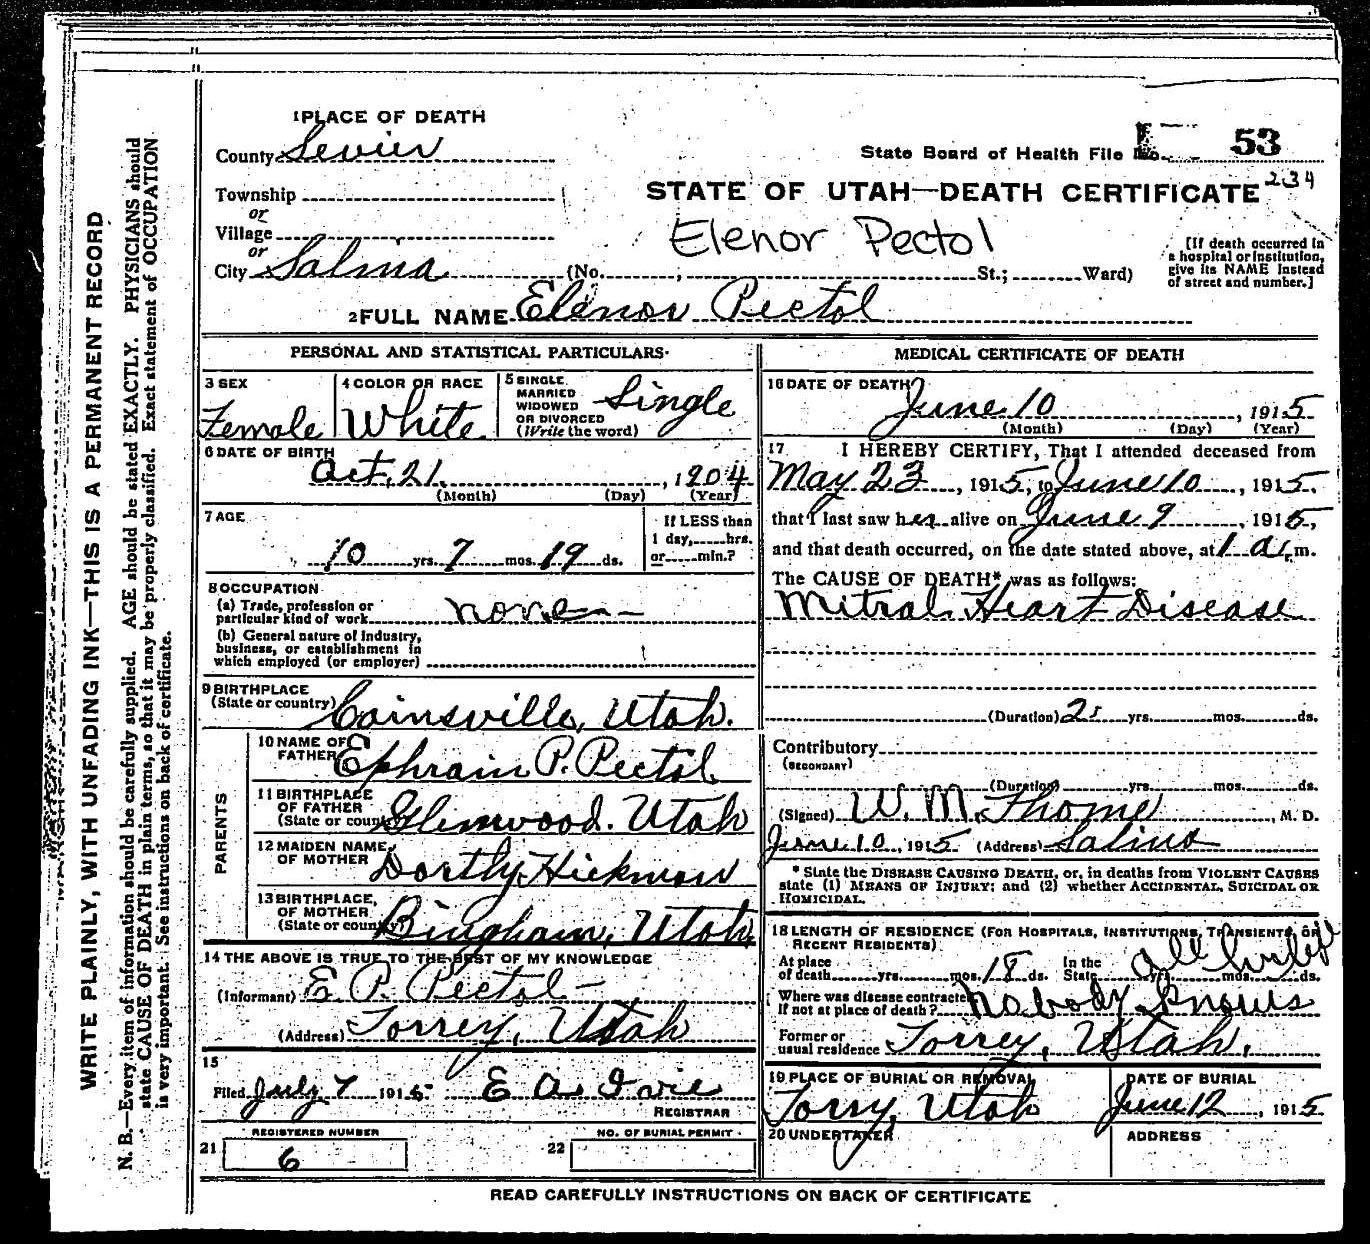 WRITE PLAINLY, WITH UNFADING INK—THIS IS A PERMANENT RECORD
N. B.—Every item of information should be carefully supplied. AGE should be stated EXACTLY. PHYSICIANS should
state CAUSE OF DEATH in plain terms, so that it may be properly classified. Exact statement of OCCUPATION
is very important. See instructions on back of certificate.
1 PLACE OF DEATH
County Sevier
State Board of Health File No. 53
234
Township
or
Village
or
City Salina (No. ; St.; Ward)
STATE OF UTAH—DEATH CERTIFICATE
Elenor Pectol
[If death occurred in
a hospital or institution,
give its NAME instead
of street and number.]
2 FULL NAME Elenor Pectol
PERSONAL AND STATISTICAL PARTICULARS
3 SEX
Female
4 COLOR OR RACE
White
5 SINGLE
MARRIED
WIDOWED
OR DIVORCED
(Write the word)
Single
6 DATE OF BIRTH
Oct. 21, 1904
(Month) (Day) (Year)
7 AGE
10 yrs. 7 mos. 19 ds.
If LESS than
1 day, hrs.
or min.?
8 OCCUPATION
(a) Trade, profession or
particular kind of work none
(b) General nature of industry,
business, or establishment in
which employed (or employer)
9 BIRTHPLACE
(State or country) Cainsville, Utah.
PARENTS
10 NAME OF
FATHER Ephraim P. Pectol
11 BIRTHPLACE
OF FATHER
(State or country) Glenwood. Utah
12 MAIDEN NAME
OF MOTHER Dorthy Hickman
13 BIRTHPLACE,
OF MOTHER
(State or country) Bingham, Utah
14 THE ABOVE IS TRUE TO THE BEST OF MY KNOWLEDGE
(Informant) E. P. Pectol
(Address) Torrey, Utah
15
Filed July 7 1915 E A Ivie
REGISTRAR
REGISTERED NUMBER
21 6
NO. OF BURIAL PERMIT
22
MEDICAL CERTIFICATE OF DEATH
16 DATE OF DEATH
June 10, 1915
(Month) (Day) (Year)
17 I HEREBY CERTIFY, That I attended deceased from
May 23, 1915, to June 10, 1915,
that I last saw her alive on June 9, 1915,
and that death occurred, on the date stated above, at 1 a.m.
The CAUSE OF DEATH* was as follows:
Mitral Heart Disease
(Duration) 2 yrs. mos. ds.
Contributory
(SECONDARY)
(Duration) yrs. mos. ds.
(Signed) W. M. Thome, M. D.
June 10, 1915 (Address) Salina
* State the DISEASE CAUSING DEATH, or, in deaths from VIOLENT CAUSES
state (1) MEANS OF INJURY; and (2) whether ACCIDENTAL, SUICIDAL OR
HOMICIDAL.
18 LENGTH OF RESIDENCE (FOR HOSPITALS, INSTITUTIONS, TRANSIENTS, OR
RECENT RESIDENTS)
At place
of death yrs. mos. 18 ds.
In the
State yrs. mos. ds. all her life
Where was disease contracted
if not at place of death? nobody knows
Former or
usual residence Torrey, Utah.
19 PLACE OF BURIAL OR REMOVAL
Torry, Utah
DATE OF BURIAL
June 12, 1915
20 UNDERTAKER
ADDRESS
READ CAREFULLY INSTRUCTIONS ON BACK OF CERTIFICATE